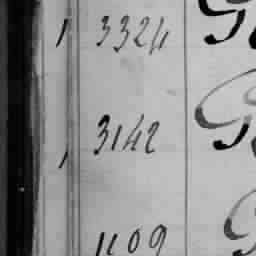 1 3324 G
1 3142 G
1109 G